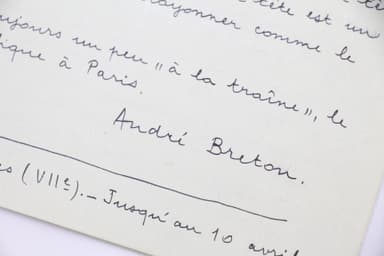 tête est un
rayonner comme le
toujours un peu "à la traîne", le
à Paris.
André Breton.
(VIIe). – Jusqu'au 10 avril